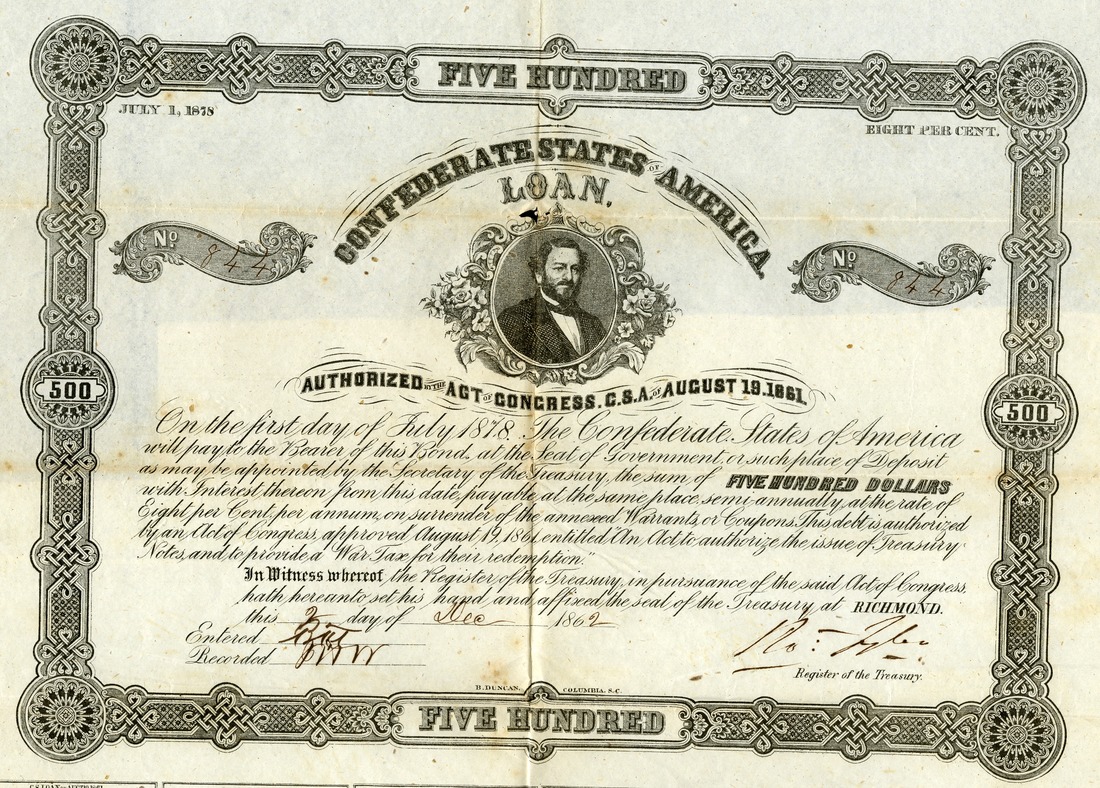 FIVE HUNDRED
JULY 1, 1878
EIGHT PER CENT.
CONFEDERATE STATES OF AMERICA
LOAN.
No 844
No 844
AUTHORIZED BY THE ACT OF CONGRESS. C.S.A. OF AUGUST 19.1861.
500
500
On the first day of July 1878. The Confederate States of America
will pay to the Bearer of this Bond, at the Seat of Government, or such place of Deposit
as may be appointed by the Secretary of the Treasury, the sum of FIVE HUNDRED DOLLARS
with Interest thereon from this date, payable at the same place, semi-annually, at the rate of
Eight per Cent, per annum, on surrender of the annexed Warrants or Coupons. This debt is authorized
by an Act of Congress, approved August 19, 1861, entitled "An Act, to authorize the issue of Treasury
Notes, and to provide a War Tax for their redemption."
In Witness whereof the Register of the Treasury, in pursuance of the said Act of Congress,
hath hereunto set his hand and affixed the seal of the Treasury at RICHMOND.
this day of Dec 1862
Entered
Recorded
Ro: Tyler
Register of the Treasury.
B. DUNCAN. COLUMBIA. S.C.
FIVE HUNDRED